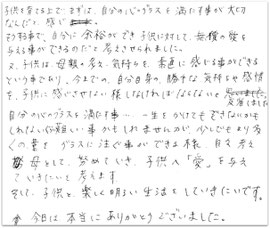 子供を育てる上でまずは、自分の心のグラスを満たす事が大切
なんだと感じ
そうする事で、自分に余裕ができ子供に対して、無償の愛を
与える事ができるのだと考えさせられました。
又、子供は、母親の考え、気持ちを、素直に感じる事ができると
いう事であり、今までの、自分自身の、勝手な気持ちや感情
を、子供に感じさせない様しなければならないと思いました。
反省しました
自分の心のグラスを満たす…一生をかけてもできないかも
しれない位難しい事かもしれませんが、少しでもより多
くの愛を、グラスに注ぐ事ができる様、自ら考え
母として、努めていき、子供へ「愛」を与え
ていきたいと考えます。
そして、子供と、楽しく明るい生活をしていきたいです。
今日は本当にありがとうございました。